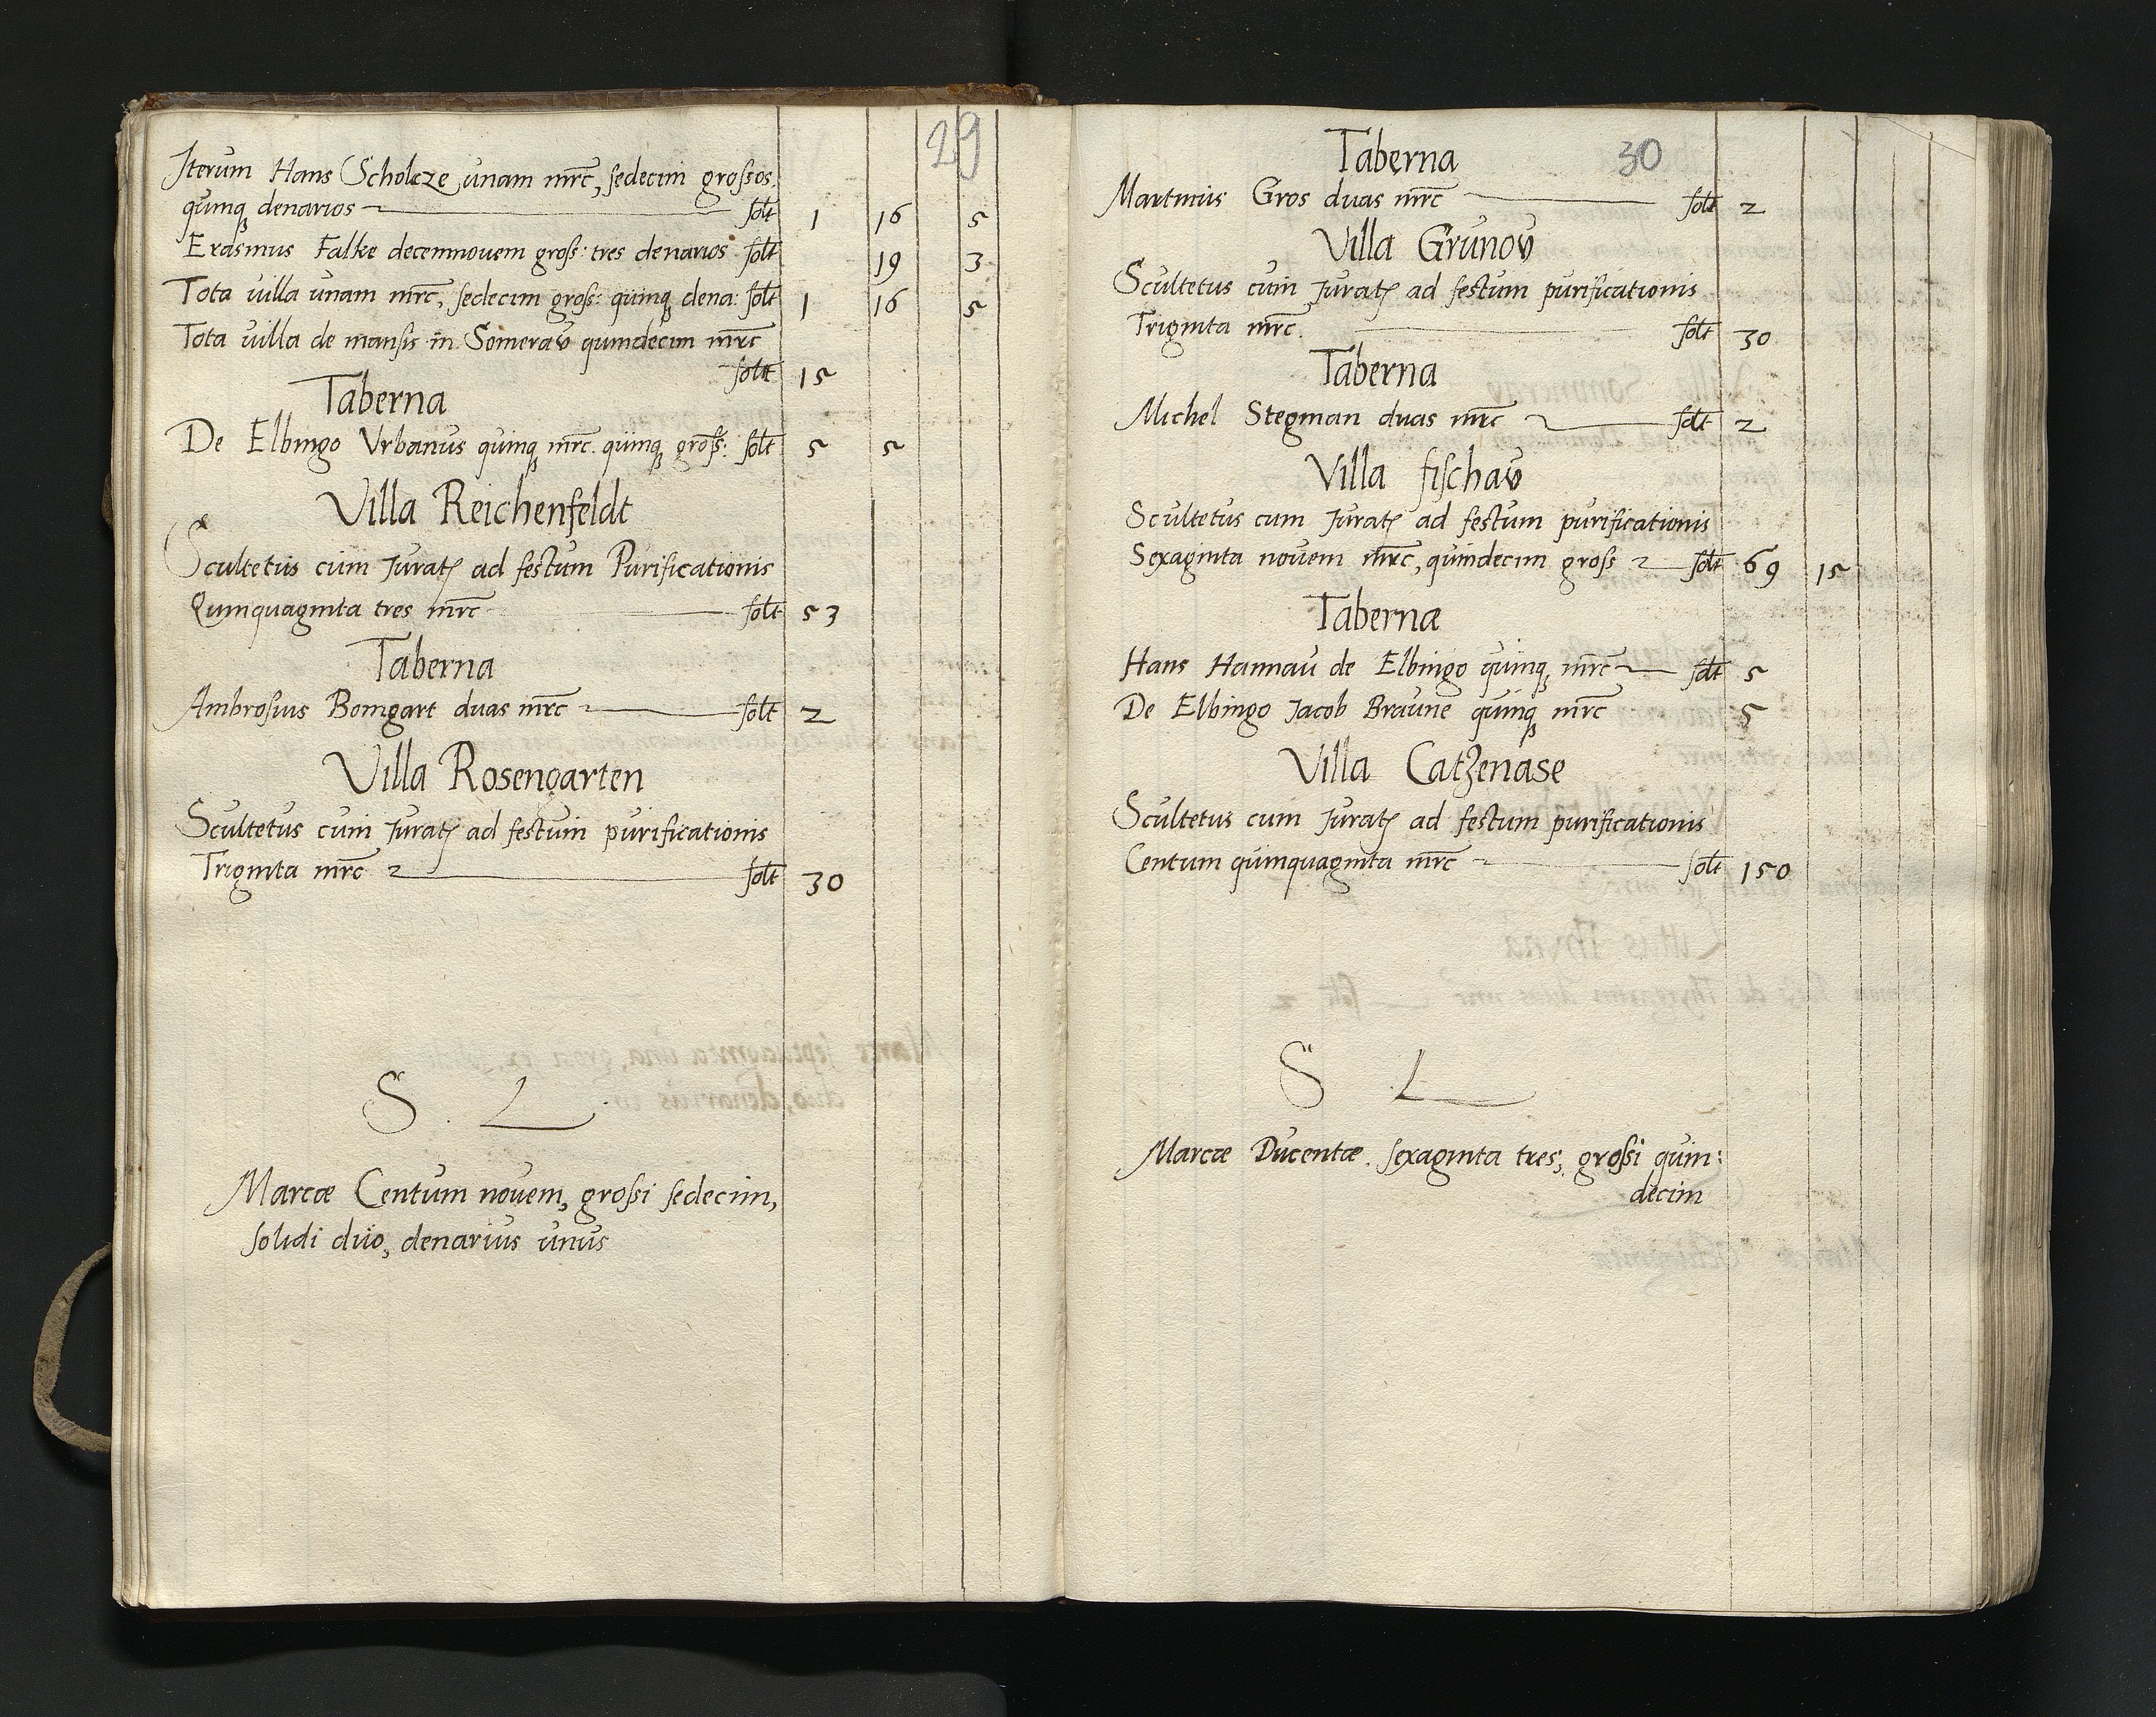 29
Iterum Hans Scholcze unam mrc, sedecim grossos,
quinq denarios solt 1 16 5
Erasmus Falke decemnovem gross: tres denarios solt 19 3
Tota villa unam mrc, sedecim gross: quinq dena: solt 1 16 5
Tota villa de mansis in Somerav quindecim mrc
solt 15
Taberna
De Elbingo Vrbanus quinq mrc. quinq gross: solt 5 5
Villa Reichenfeldt
Scultetus cum Jurat ad festum Purificationis
Quinquaginta tres mrc solt 53
Taberna
Ambrosius Bomgart duas mrc solt 2
Villa Rosengarten
Scultetus cum Jurat ad festum purificationis
Triginta mrc solt 30
S. L
Marcæ Centum novem, grossi sedecim,
solidi duo, denarius unus
30
Taberna
Martinus Gros duas mrc solt 2
Villa Grunov
Scultetus cum Jurat ad festum purificationis
Triginta mrc. solt 30
Taberna
Michel Stegman duas mrc solt 2
Villa fischav
Scultetus cum Jurat ad festum purificationis
Sexaginta novem mrc, quindecim gross solt 69 15
Tabernæ
Hans Hannau de Elbingo quinq mrc solt 5
De Elbingo Jacob Braune quinq mrc 5
Villa Catzenase
Scultetus cum Jurat ad festum purificationis
Centum quinquaginta mrc solt 150
S L
Marcæ Ducentæ sexaginta tres, grossi quin:
decim